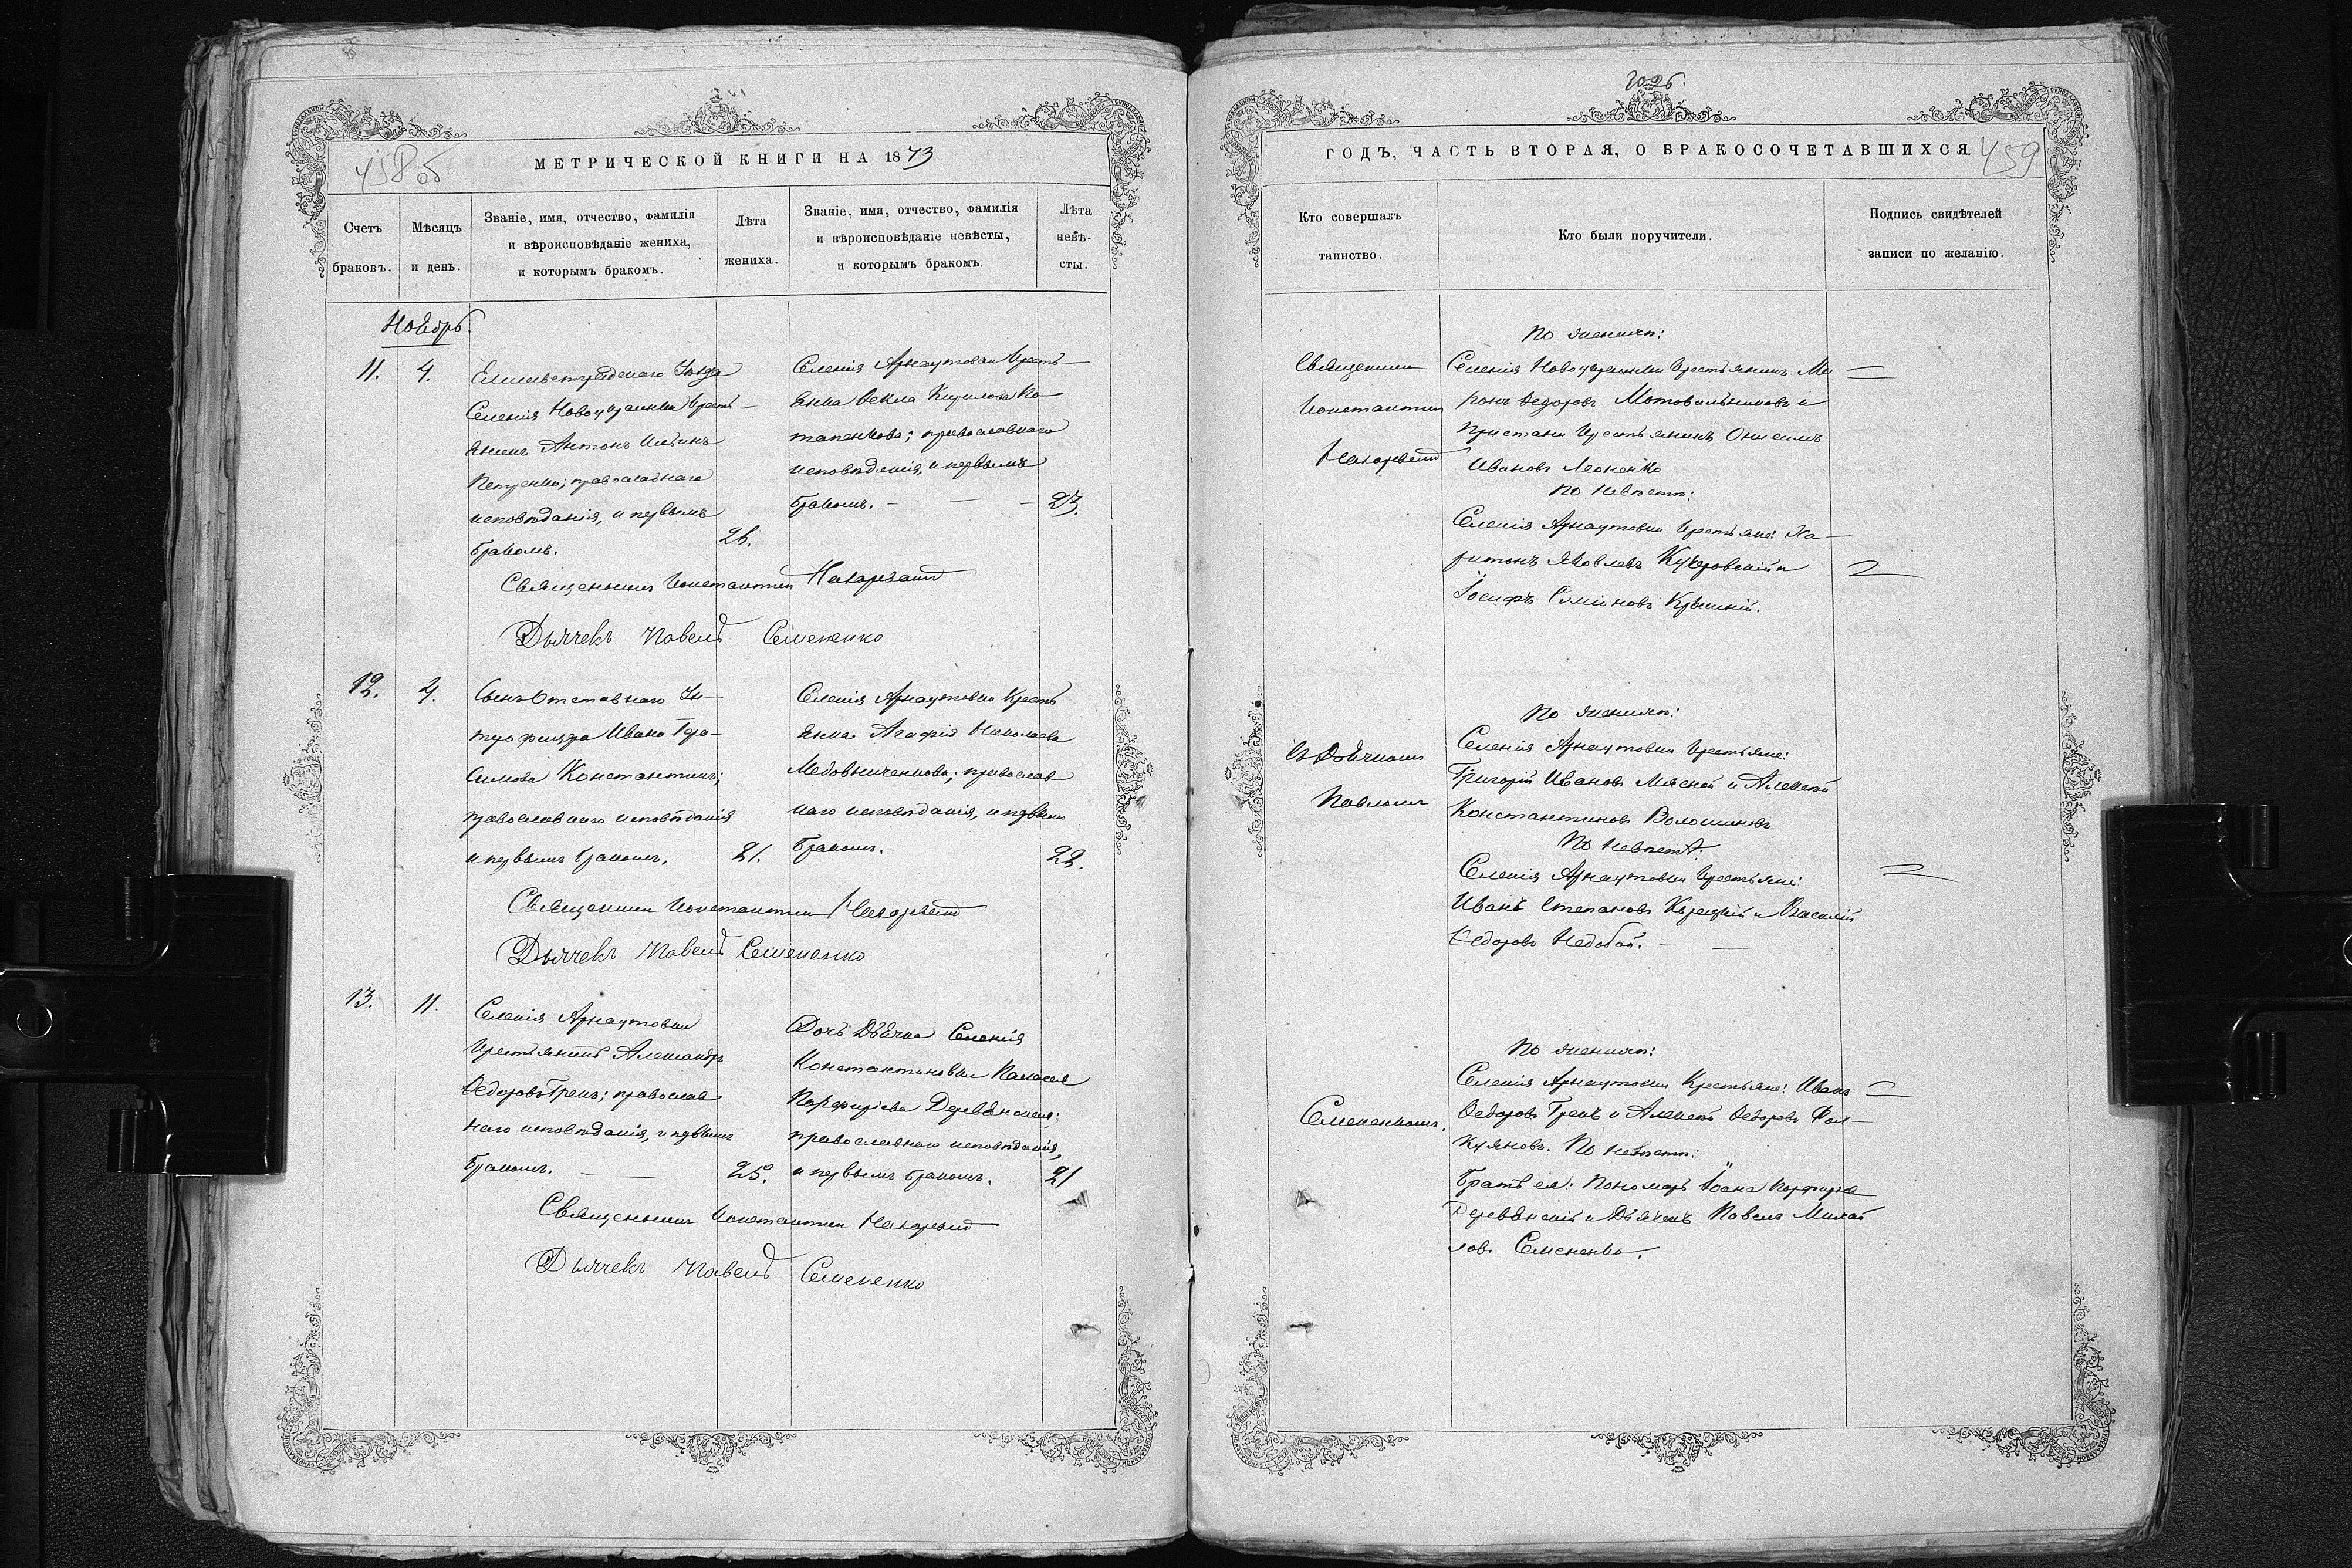 458об
МЕТРИЧЕСКОЙ КНИГИ НА 1873
Счетъ браковъ.
Мѣсяцъ и день.
Званіе, имя, отчество, фамилія
и вѣроисповѣданіе жениха,
и которымъ бракомъ.
Лѣта
жениха.
Званіе, имя, отчество, фамилія
и вѣроисповѣданіе невѣсты,
и которымъ бракомъ.
Лѣта
невѣ-
сты.
Ноябрь.
11.
4.
Елисаветградскаго Уѣзда
Селенія Новоукраинки Крестъ-
янинъ Антонъ
Петренко; православнаго
исповѣданія, и первымъ
бракомъ.
26.
Селенія Арнаутовки Крестъ-
янка Ѳекла Кирилова По-
тапенкова; православнаго
исповѣданія, и первымъ
бракомъ. - — -
23.
Священникъ Константинъ
Дьячекъ Павелъ Семененко
12.
4.
Сынъ Отставнаго Ун-
теръ Ивана Гера-
симова Константинъ;
православнаго исповѣданія
и первымъ бракомъ.
21.
Селенія Арнаутовки Кресть
янка Агафія Николаева
Медовниченкова; православ
наго исповѣданія, и первымъ
бракомъ.
22.
Священникъ Константинъ
Дьячекъ Павелъ Семененко
13.
11.
Селенія Арнаутовки
Крестьянинъ Александръ
Ѳедоровъ Грекъ; православ
наго исповѣданія, и первымъ
бракомъ. — —
25.
Дочь Дьячка Селенія
Константиновки Пелагея
Порфирiева
православнаго исповѣданія,
и первымъ бракомъ.
21
Священникъ Константинъ
Дьячекъ Павелъ Семененко
1026.
ГОДЪ, ЧАСТЬ ВТОРАЯ, О БРАКОСОЧЕТАВШИХСЯ.
459
Кто совершалъ
таинство.
Кто были поручители.
Подпись свидѣтелей
записи по желанію.
Священникъ
Константинъ
По женихѣ:
Селенія Новоукраинки Крестьянинъ Ми
ронъ Ѳедоровъ Мотовильниковъ и
Пристани Крестьянинъ Онисимъ
Ивановъ Леоненко
По невѣстѣ:
Селенія Арнаутовки Крестьяне: Ха-
ритонъ Яковлевъ Кучеровскій и
Іосифъ Симіоновъ
съ Дьячкомъ
Павломъ
По женихѣ:
Селенія Арнаутовки Крестьяне:
Григорій Ивановъ Мясной и Алексѣй
Константиновъ Волошиновъ
По невѣстѣ:
Селенія Арнаутовки Крестьяне:
Иванъ Степановъ и Василій
Ѳедоровъ Недобой. — —
Семененкомъ.
По женихѣ:
Селенія Арнаутовки Крестьяне: Иванъ
Ѳедоровъ Грекъ и Алексѣй Ѳедоровъ
По невѣстѣ:
Братъ ея: Пономарь Іоанъ Порфиріевъ
и Дьячекъ Павелъ Михай
ловъ Семененко.